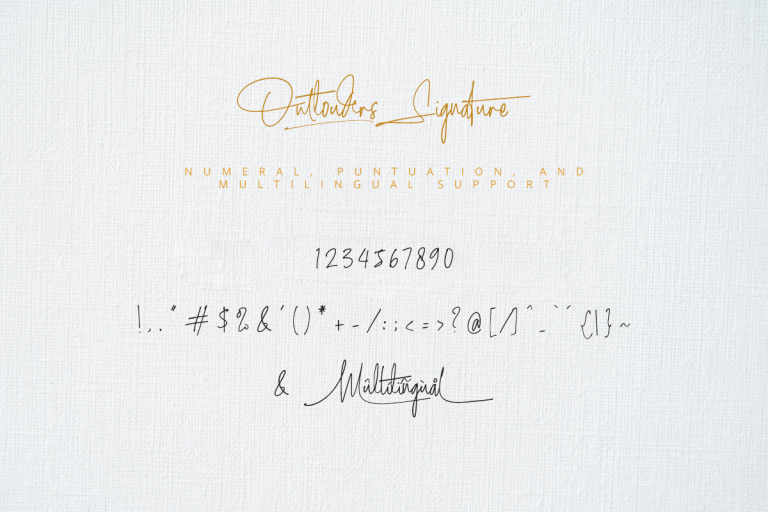 Outlouders Signature
NUMERAL, PUNTUATION, AND
MULTILINGUAL SUPPORT
1234567890
!,." #$%&'()*+-/:;<=>?@[/]^_`´{|}~
& Múltilingùál